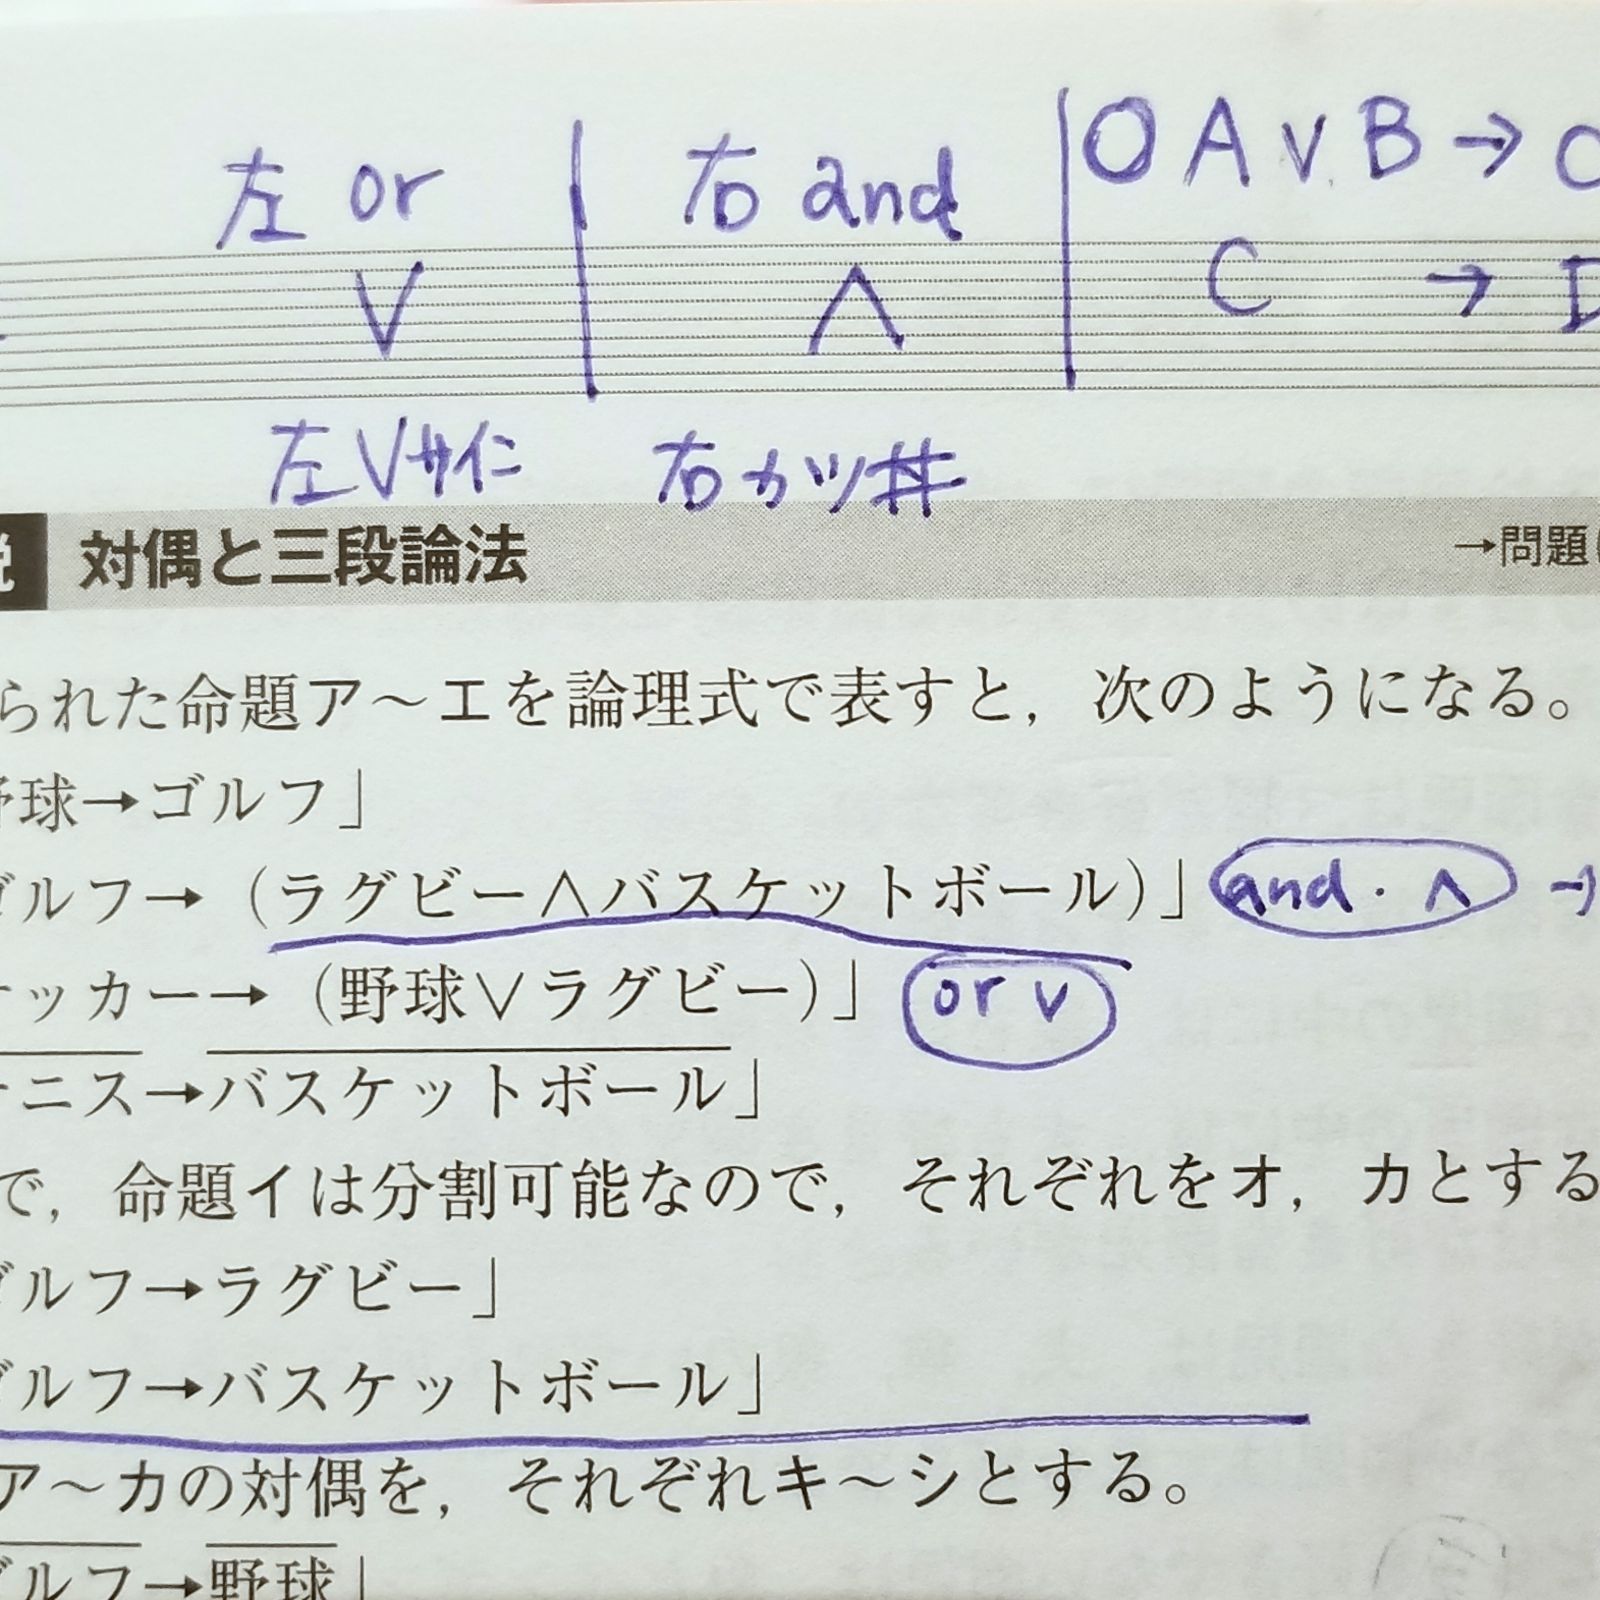 左 or 右 and ○ A ∨ B →
∨ ∧ C →
左Vサイン 右カツ丼
対偶と三段論法 →問題
られた命題ア～エを論理式で表すと，次のようになる。
球→ゴルフ」
ルフ→（ラグビー∧バスケットボール）」 and・∧ →
ッカー→（野球∨ラグビー）」 or ∨
ニス→バスケットボール」
で，命題イは分割可能なので，それぞれをオ，カとする
ルフ→ラグビー」
ルフ→バスケットボール」
ア～カの対偶を，それぞれキ～シとする。
ルフ→野球」